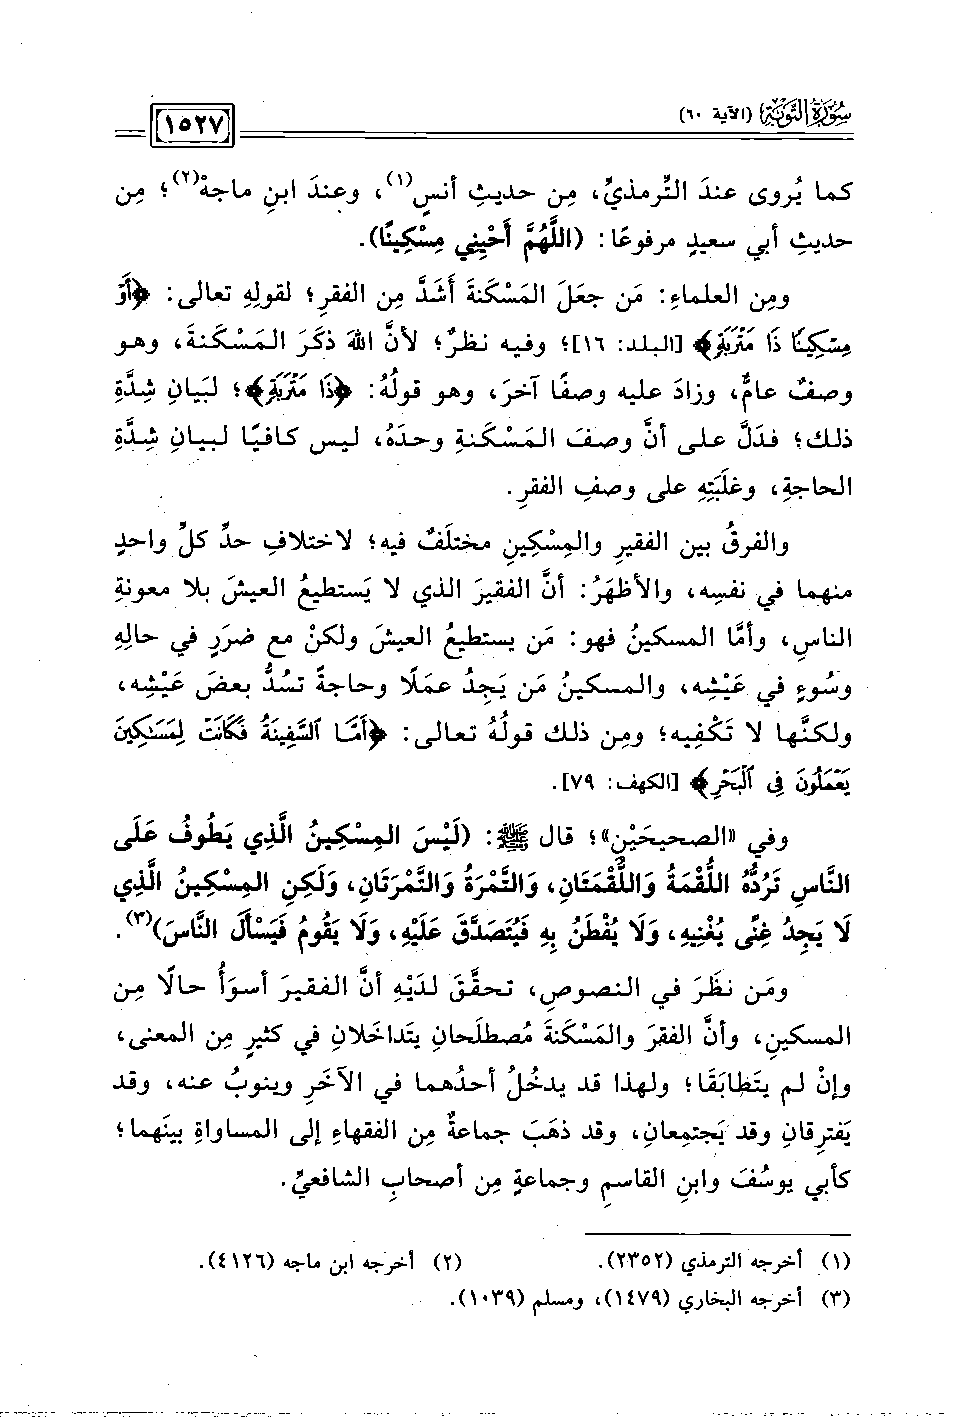 سُورَةُ التَّوْبَةِ (الآية ٦٠)
١٥٢٧
كما يُروى عندَ التِّرمذيِّ، مِن حديثِ أنسٍ(١)، وعندَ ابنِ ماجهْ(٢)؛ مِن
حديثِ أبي سعيدٍ مرفوعًا: (اللَّهُمَّ أَحْيِنِي مِسْكِينًا).
ومِن العلماءِ: مَن جعَلَ المَسْكنةَ أشَدَّ مِن الفقرِ؛ لقولِهِ تعالى: ﴿أَوْ
مِسْكِينًا ذَا مَتْرَبَةٍ﴾ [البلد: ١٦]؛ وفيه نظرٌ؛ لأنَّ اللهَ ذكَرَ المَسْكَنةَ، وهو
وصفٌ عامٌّ، وزادَ عليه وصفًا آخرَ، وهو قولُهُ: ﴿ذَا مَتْرَبَةٍ﴾؛ لبَيانِ شِدَّةِ
ذلك؛ فدَلَّ على أنَّ وصفَ المَسْكنةِ وحدَهُ، ليس كافيًا لبيانِ شِدَّةِ
الحاجةِ، وغلَبَتِهِ على وصفِ الفقرِ.
والفرقُ بين الفقيرِ والمِسْكِينِ مختلَفٌ فيه؛ لاختلافِ حدِّ كلِّ واحدٍ
منهما في نفسِه، والأظهَرُ: أنَّ الفقيرَ الذي لا يَستطيعُ العيشَ بلا معونةِ
الناسِ، وأمَّا المسكينُ فهو: مَن يستطيعُ العيشَ ولكنْ مع ضرَرٍ في حالِهِ
وسُوءٍ في عَيْشِه، والمسكينُ مَن يَجِدُ عمَلًا وحاجةً تسُدُّ بعضَ عَيْشِه،
ولكنَّها لا تَكْفِيه؛ ومِن ذلك قولُهُ تعالى: ﴿أَمَّا ٱلسَّفِينَةُ فَكَانَتْ لِمَسَٰكِينَ
يَعْمَلُونَ فِى ٱلْبَحْرِ﴾ [الكهف: ٧٩].
وفي «الصحيحَيْنِ»؛ قال ﷺ: (لَيْسَ المِسْكِينُ الَّذِي يَطُوفُ عَلَى
النَّاسِ تَرُدُّهُ اللُّقْمَةُ وَاللُّقْمَتَانِ، وَالتَّمْرَةُ وَالتَّمْرَتَانِ، وَلَكِنِ المِسْكِينُ الَّذِي
لَا يَجِدُ غِنًى يُغْنِيهِ، وَلَا يُفْطَنُ بِهِ فَيُتَصَدَّقَ عَلَيْهِ، وَلَا يَقُومُ فَيَسْأَلَ النَّاسَ)(٣).
ومَن نظَرَ في النصوصِ، تحقَّقَ لدَيْهِ أنَّ الفقيرَ أسوَأُ حالًا مِن
المسكينِ، وأنَّ الفقرَ والمَسْكَنةَ مُصطلَحانِ يتَداخَلانِ في كثيرٍ مِن المعنى،
وإنْ لم يتَطابَقَا؛ ولهذا قد يدخُلُ أحدُهما في الآخَرِ وينوبُ عنه، وقد
يَفترِقانِ وقد يَجتمِعانِ، وقد ذهَبَ جماعةٌ مِن الفقهاءِ إلى المساواةِ بينَهما؛
كأبي يوسُفَ وابنِ القاسمِ وجماعةٍ مِن أصحابِ الشافعيِّ.
(١) أخرجه الترمذي (٢٣٥٢). (٢) أخرجه ابن ماجه (٤١٢٦).
(٣) أخرجه البخاري (١٤٧٩)، ومسلم (١٠٣٩).